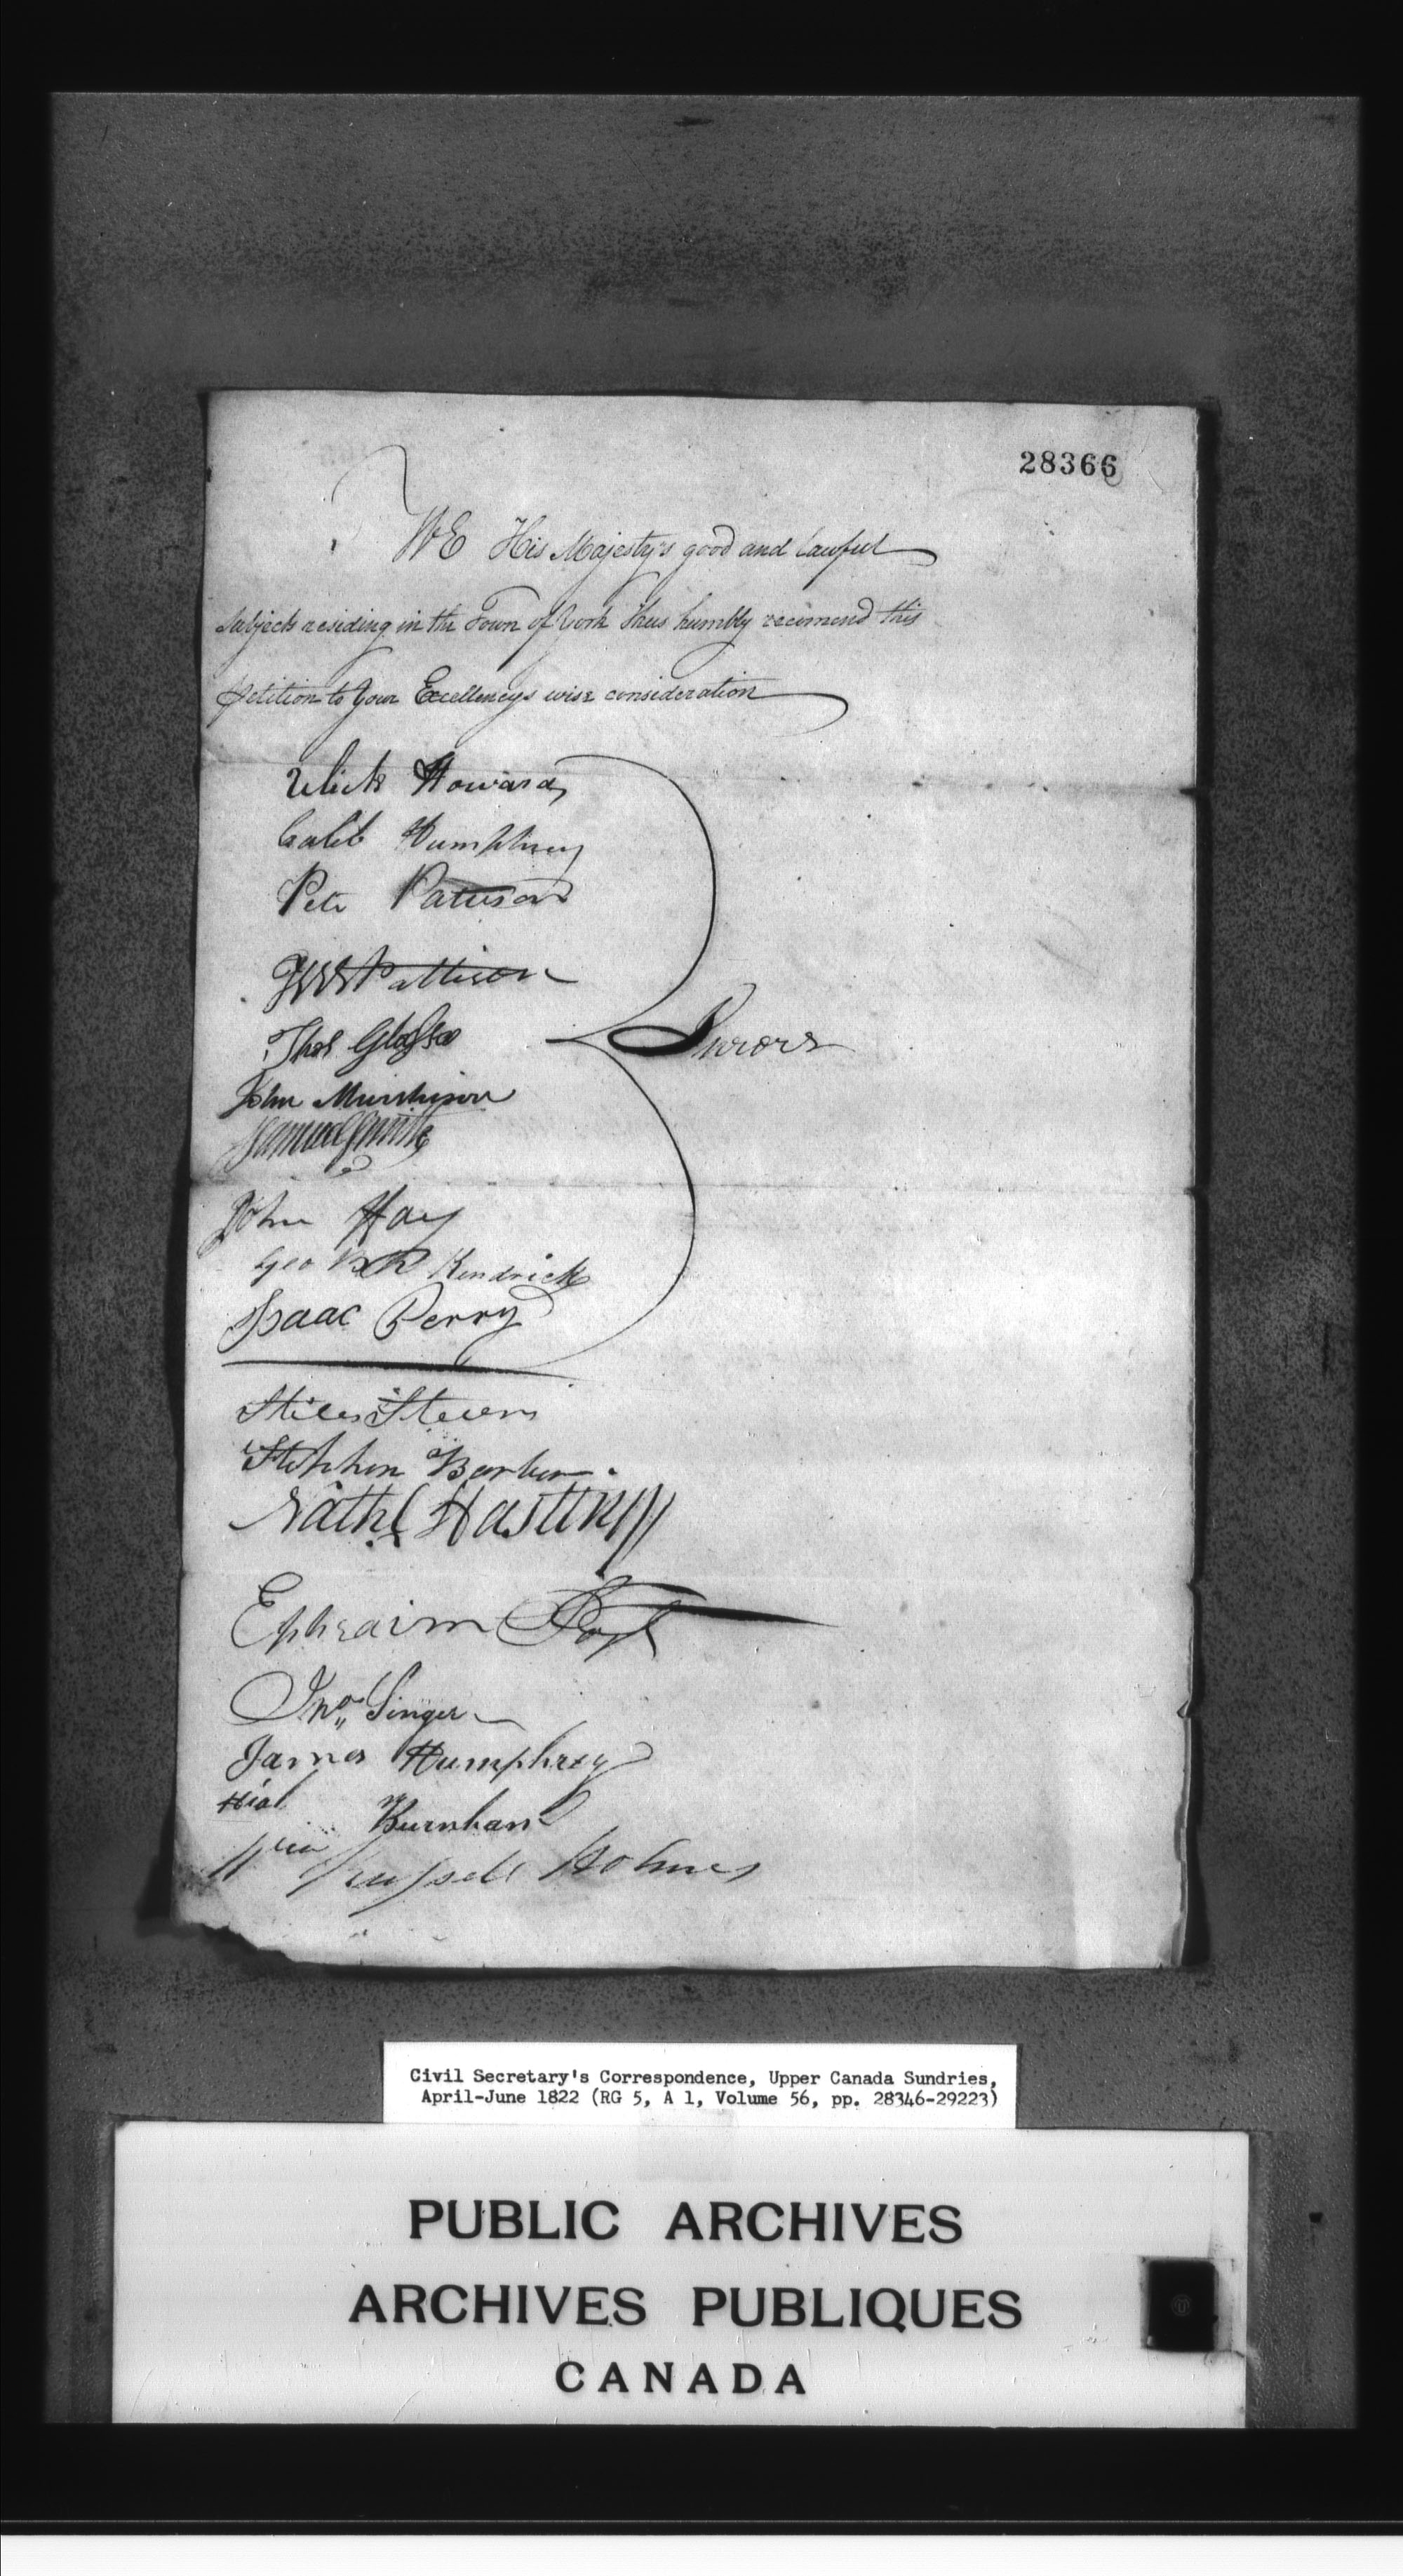 28366
WE His Majesty's good and lawful
subjects residing in the Town of York thus humbly recomend this
Petition to Your Excellencys wise consideration
Ulick Howard
Caleb Humphrey
Pete Pattison
Pattison
Thos Glasco
Jurors
John Murchison
Samuel Smith
John Hay
Geo Kendrick
Isaac Perry
Stiles Stevens
Stephen Barber
Nathl Hastings
Ephraim Post
Jno Singer
James Humphrey
Hial Burnham
Russell Holmes
Civil Secretary's Correspondence, Upper Canada Sundries,
April-June 1822 (RG 5, A 1, Volume 56, pp. 28346-29223)
PUBLIC ARCHIVES
ARCHIVES PUBLIQUES
CANADA